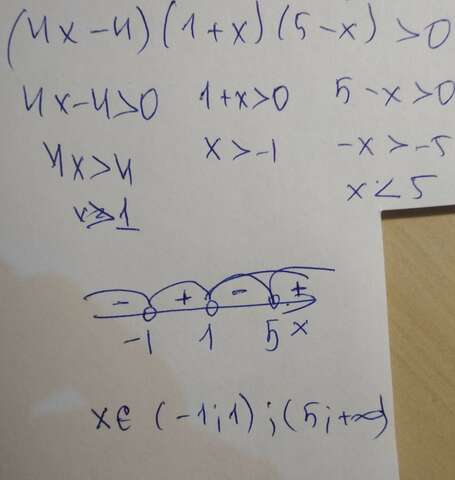 (4x-4)(1+x)(5-x)>0
4x-4>0 1+x>0 5-x>0
4x>4 x>-1 -x>-5
x>1 x<5
- + - +
-1 1 5 x
x∈ (-1;1);(5;+∞)